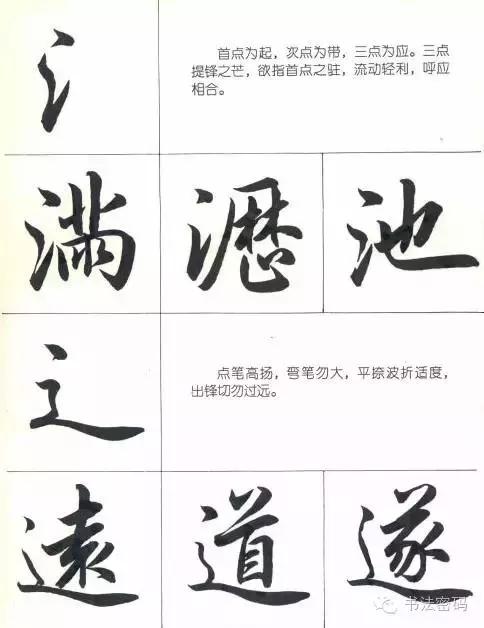 氵
首点为起，次点为带，三点为应。三点
提锋之芒，欲指首点之驻，流动轻利，呼应
相合。
滿 池
辶
点笔高扬，弯笔勿大，平捺波折适度，
出锋切勿过远。
遠 道 遂
书法密码